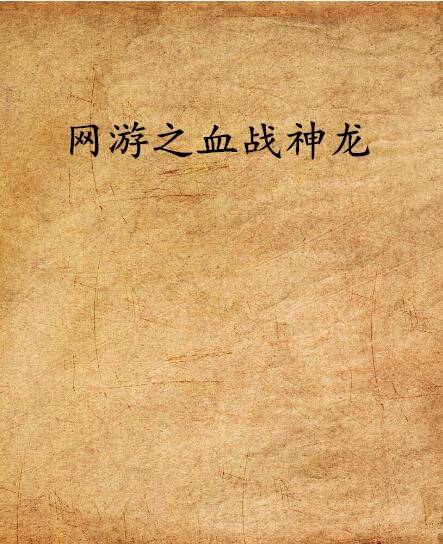 网游之血战神龙